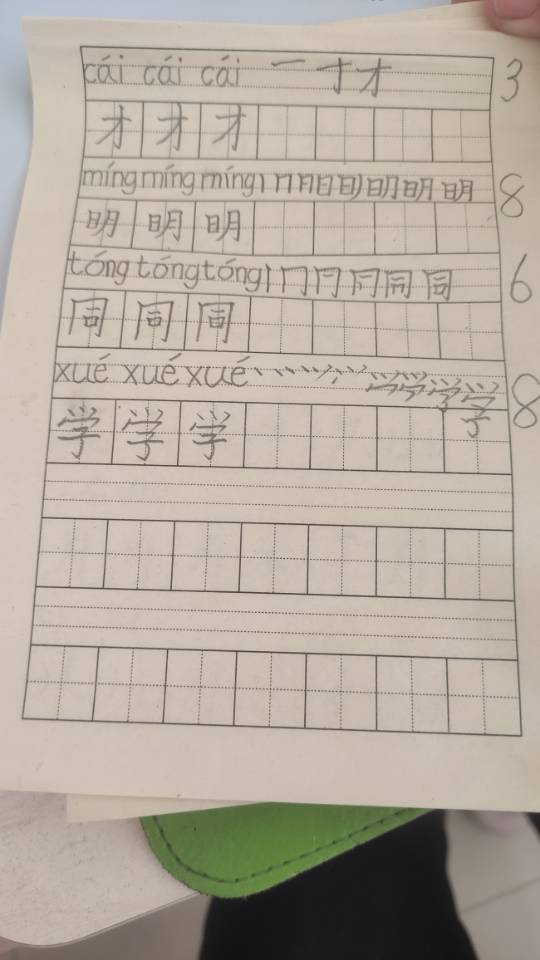 cái cái cái 一 丁 才 3
才 才 才
míng míng míng 丨 冂 日 日 明 明 8
明 明 明
tóng tóng tóng 丨 冂 同 同 6
同 同 同
xué xué xué 学 8
学 学 学